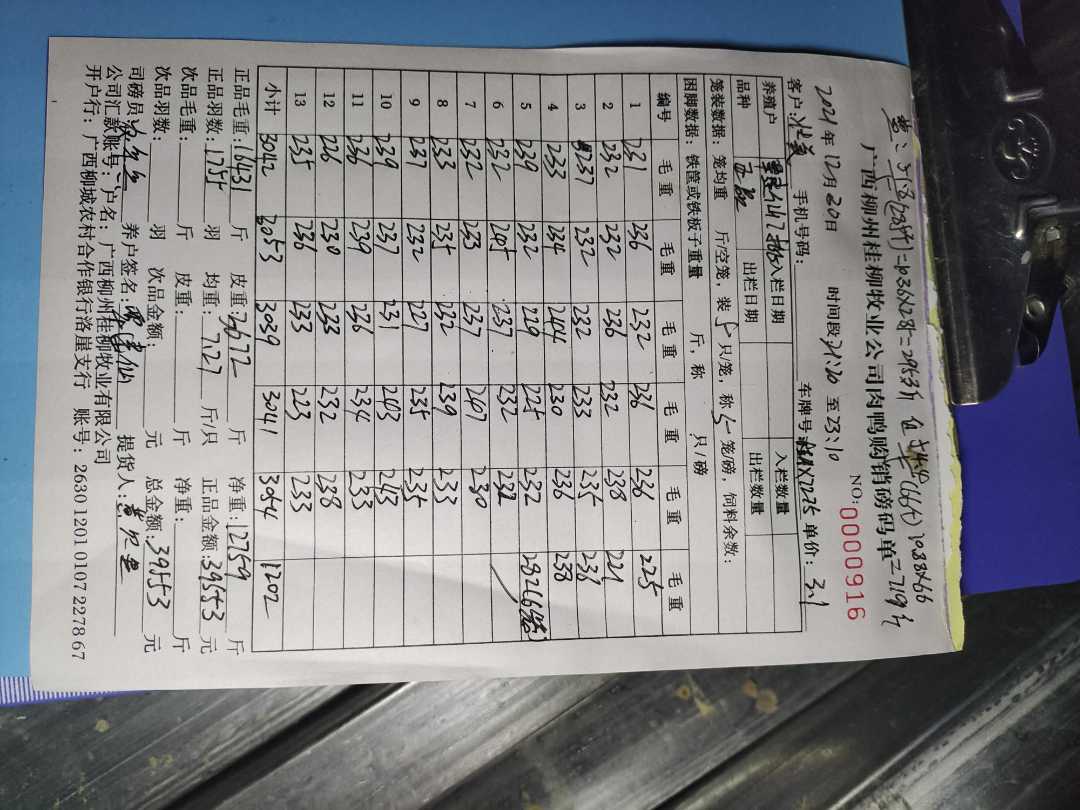 广西柳州桂柳牧业公司肉鸭购销磅码单
NO:0000916
2021年12月20日 时间段21:20至23:10
客户: 手机号码: 车牌号 X7225 单价: 3.1
养殖户 入栏日期 入栏数量
品种 出栏日期 出栏数量
笼装数据: 笼均重 斤/空笼, 装5只/笼, 称5笼/磅, 饲料余数:
困脚数据: 铁筐或铁板子重量 斤, 称 只/磅
编号 毛重 毛重 毛重 毛重 毛重 毛重
1 231 236 232 236 236 225
2 232 232 236 232 238 221
3 237 232 232 233 235 238
4 233 234 244 230 236 238
5 239 232 229 225 232 282
6 232 245 237 232 232
7 232 233 237 247 230
8 233 235 232 239 233
9 237 232 227 235 235
10 239 237 231 243 243
11 236 239 226 234 233
12 226 230 233 232 238
13 235 236 233 223 233
小计 3042 3053 3039 3041 3054 1202
正品毛重:16431斤 皮重:3672斤 净重:12759斤
正品羽数:1755羽 均重:7.27斤/只 正品金额:39553元
次品毛重: 斤 皮重: 斤 净重: 斤
次品羽数: 羽 次品金额: 元 总金额:39553元
司磅员: 养户签名: 提货人:
公司汇款账号: 户名: 广西柳州桂柳牧业有限公司
开户行: 广西柳城农村合作银行洛崖支行 账号: 2630 1201 0107 2278 67